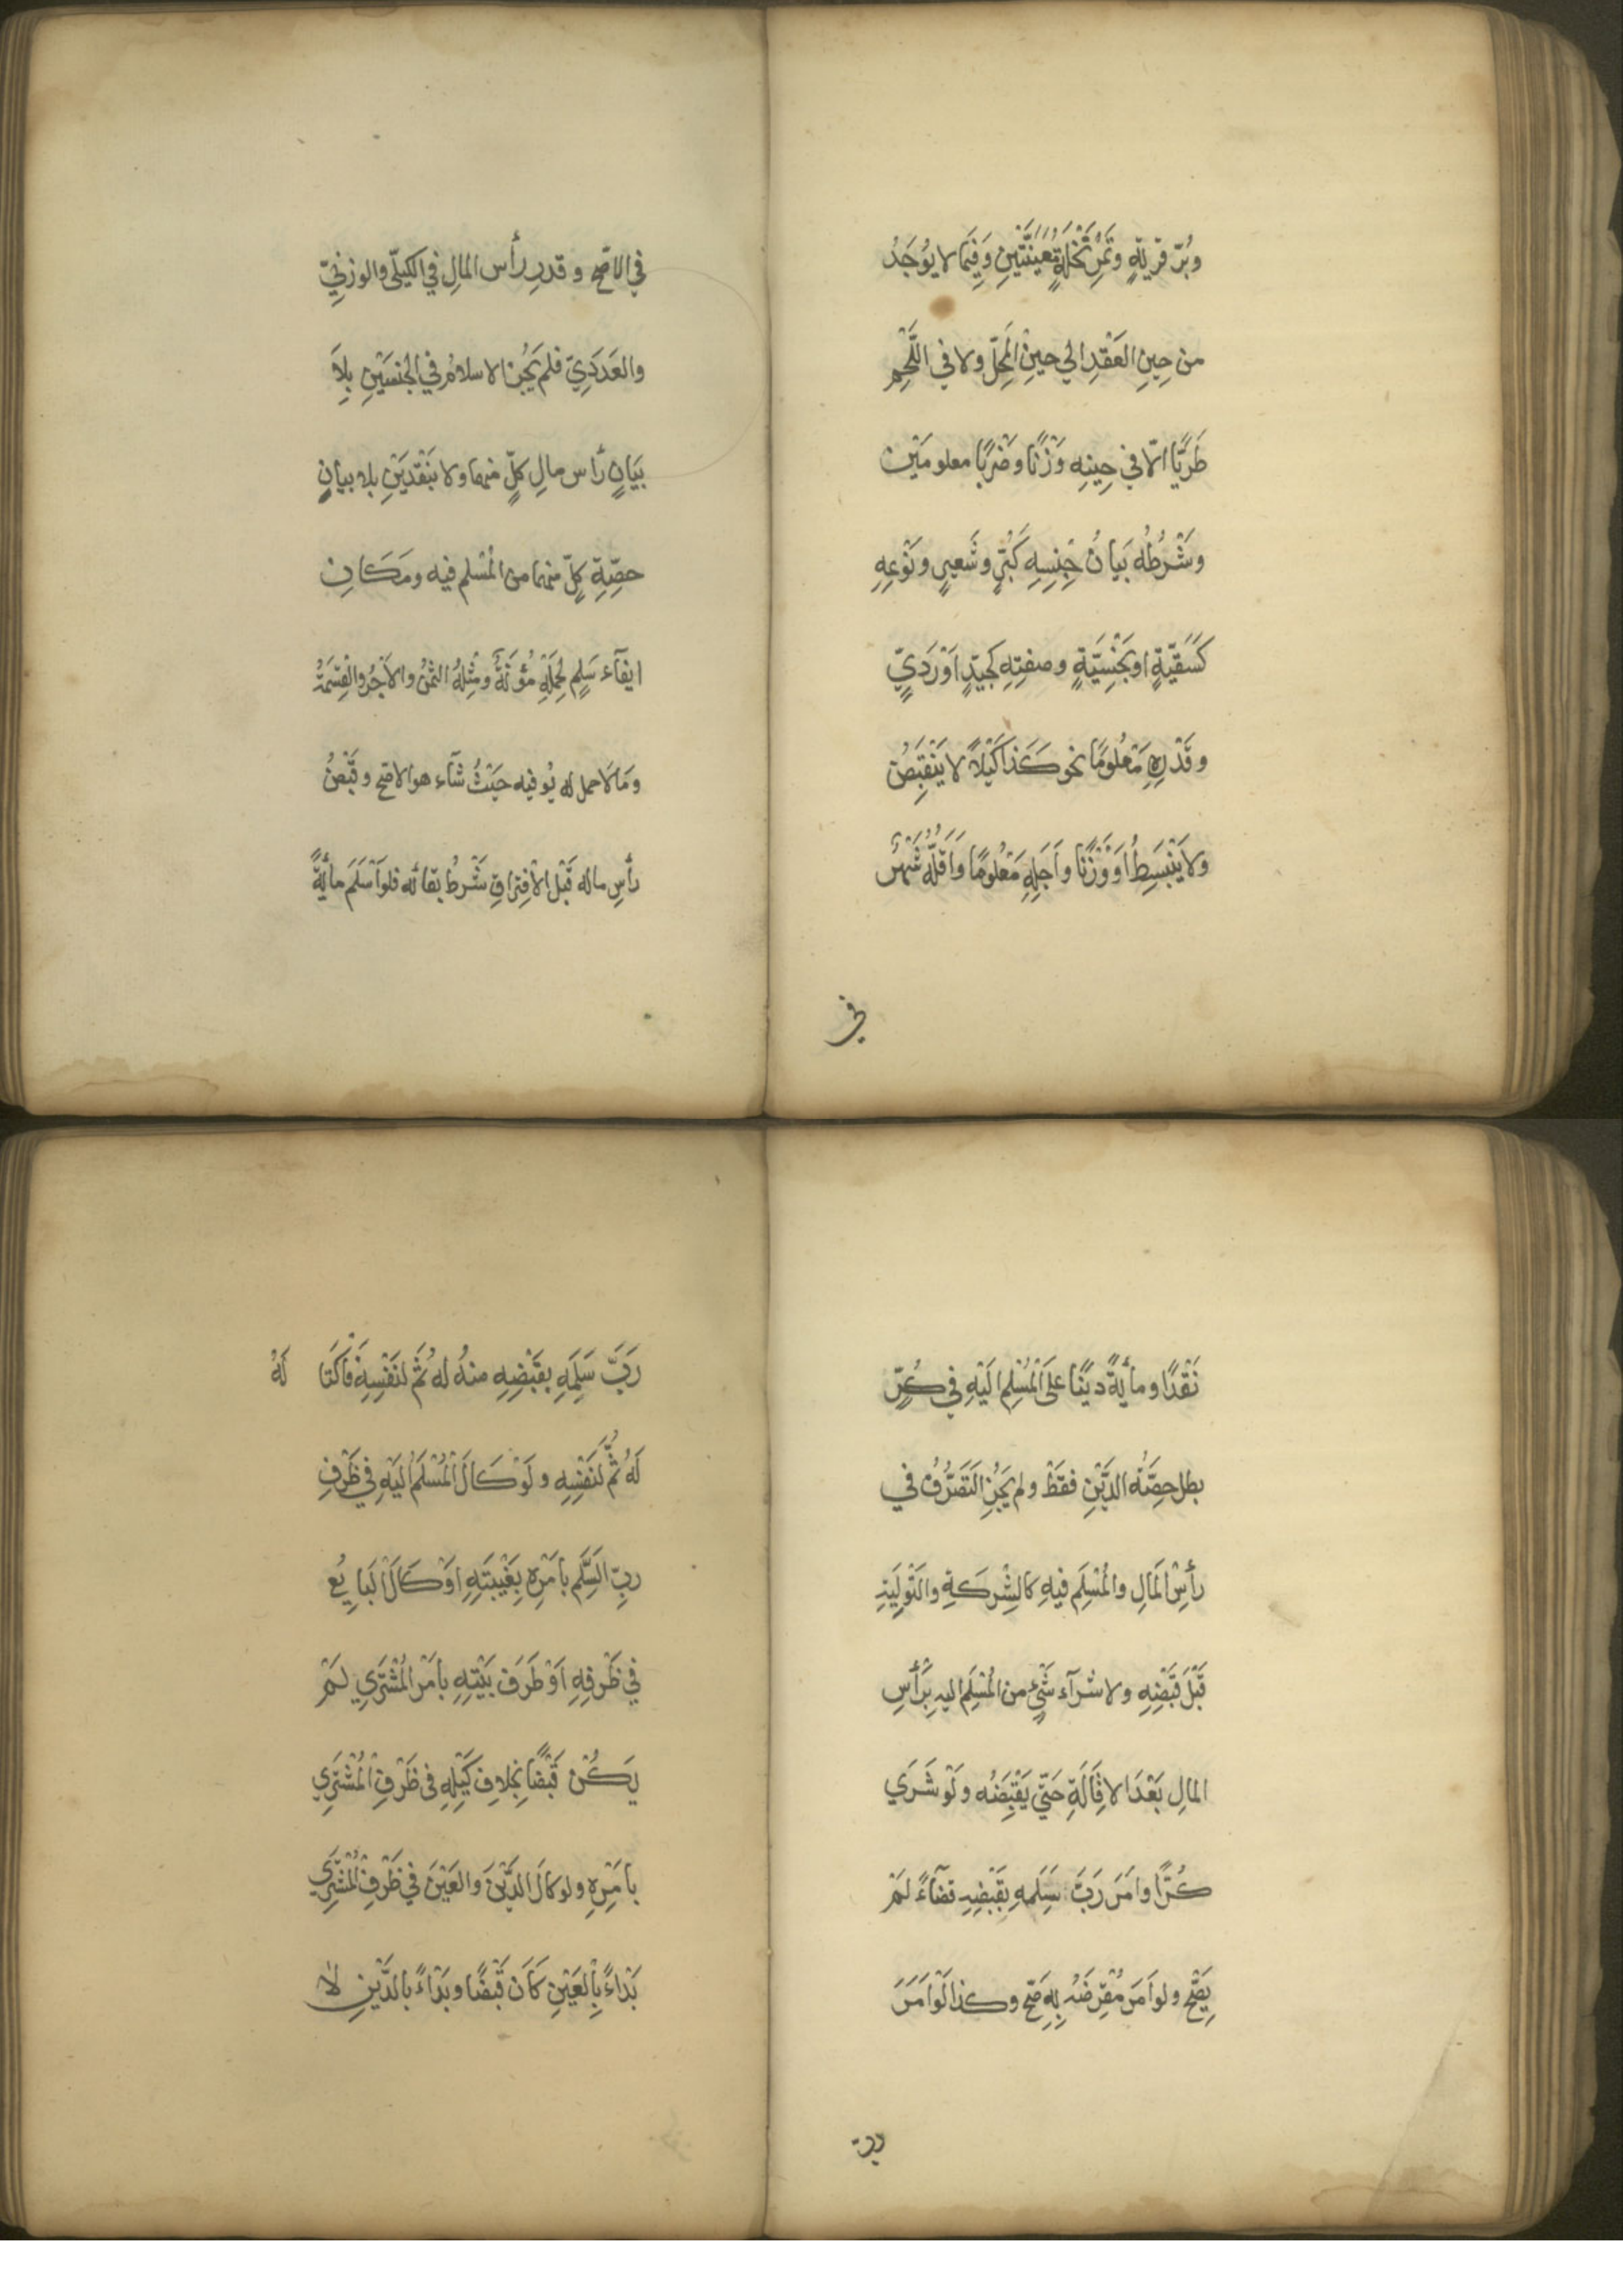 وبُرّ قريةٍ وتَمْرِ نَخْلَةٍ مُعَيَّنَتَيْنِ وَفِيمَا لا يُوجَدُ
من حِينِ العَقْدِ الي حينِ المَحِلِّ ولا في اللَّحْمِ
طَرِيًّا الّا في حِينِهِ وَزْنًا وضَرْبًا معلومَيْنِ
وشَرْطُهُ بَيانُ جِنْسِهِ كَبُرٍّ وشَعيرٍ ونَوْعِهِ
كَسَقِيَّةٍ او بَخْسِيَّةٍ وصفتِهِ كَجَيّدٍ اَوْ رَدِيٍّ
وقَدْرِهِ مَعْلومًا نحو كَذا كَيْلاً لا يَنْقَبِضُ
ولا يَنْبَسِطُ اَوْ وَزْنًا واَجَلِهِ مَعْلومًا وَاَقَلُّهُ شَهْرٌ
في
في الاصّح وقدرِ رأس المالِ في الكيليّ والوزنيّ
والعَدَدِيّ فلم يَجُز الاسلامُ في الجنسَيْنِ بِلاَ
بَيَانِ رأس مالِ كلٍّ منهما ولا بنَقْدَيْنِ بلا بيانِ
حصّةِ كلّ منهما من المُسْلم فيه ومَكَانِ
ايفآء سَلمٍ لِحَمْلِهِ مُؤْنَةٌ ومِثْلُهُ الثمنُ والاَجْرُ والقِسْمَةُ
وَمَا لَا حمل له يُوفيه حَيْثُ شآء هو الاصّح وقَبْضُ
رأسِ ماله قَبْل الاْفِتراقِ شَرْطُ بقائه فلو اَسْلَمَ مأيةً
نَقْدًا ومأيةً دينًا عَلَى المُسْلَمِ اليَهِ في كُرٍّ
بطل حِصَّةُ الدَّيْنِ فقَطْ ولم يَجُزِ التَصَرُّفُ في
رأسِ المَالِ والمُسْلَمِ فيهِ كالشِرْكَةِ والتَوْلِيَةِ
قَبْلَ قَبْضِهِ ولا شرآء شَئٍ من المُسْلَمِ اليه بِرَأسِ
المالِ بَعْدَ الاقَالَةِ حَتّي يَقْبِضَه ولَوْ شَرَي
كُرًّا وامَرَ رَبَّ سَلَمِهِ بقَبْضِهِ قضآءً لَمْ
يَصِّح ولو اَمَرَ مُقْرِضَهُ بِهِ صَحّ وكذا لَوْ اَمَرَ
ربّ
رَبَّ سَلَمِهِ بقَبْضِهِ منهُ له ثُمَّ لنَفْسِهِ فَاكْتَا لَهُ
لَهُ ثُمَّ لنَفْسِهِ ولَوْ كَالَ المُسْلَمُ اليَهِ في ظَرْفِ
ربّ السَّلَمِ بأمْرِهِ بِغَيْبَتِهِ اوْ كَالَ البَايعُ
في ظَرْفِهِ اَوْ ظَرْفِ بَيْتِهِ بأمْرِ المُشْتَرِي لمْ
يَكُنْ قَبْضًا بخِلافِ كَيْلِهِ في ظَرْفِ المُشْتَرِي
بأمْرِهِ ولو كالَ الدَّيْنَ والعَيْنَ في ظَرْفِ المُشْتَرِي
بَدْاءً بِالعَيْنِ كَانَ قَبْضًا وبَدْاءً بالدَّيْنِ لا